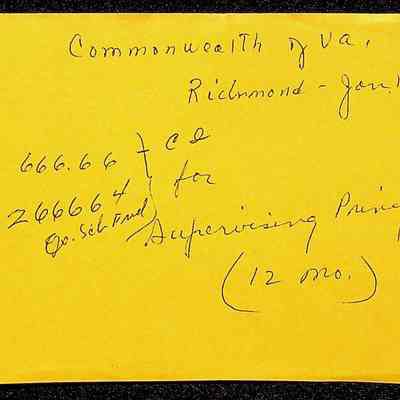 Commonwealth of Va.
Richmond - Jan.
666.66 } C D
266664 for
Co. Sch Fund
Supervising Princ
(12 mo.)